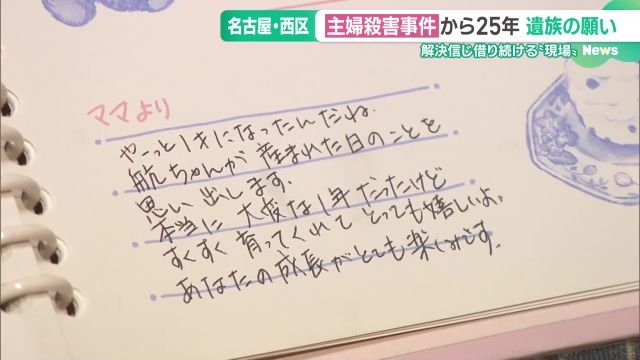 名古屋・西区 主婦殺害事件から25年 遺族の願い
解決信じ借り続ける〝現場〟 News
ママより
やーっと1才になったんだね。
航ちゃんが産まれた日のことを
思い出します。
本当に大変な1年だったけど
すくすく育ってくれてとっても嬉しいよ。
あなたの成長がとても楽しみです。